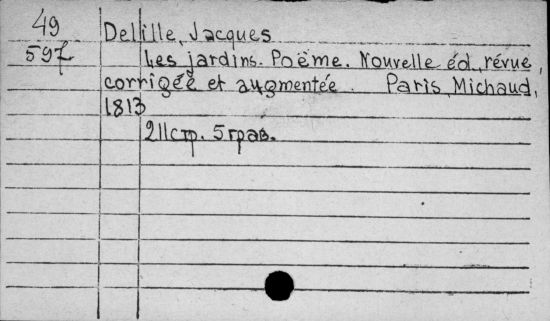 49
597
Delille, Jacques
Les jardins. Poëme. Nouvelle éd, révue,
corrigée et augmentée. Paris, Michaud,
1813
211стр. 5 грав.